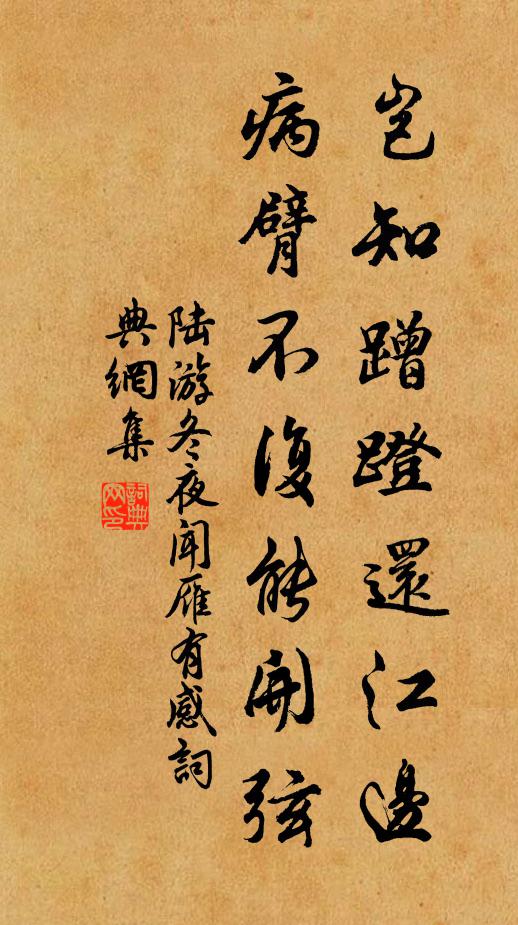 豈知蹭蹬還江邊
病臂不復能開弦
陸游冬夜闻雁有感詞
典網集
詞典
网印